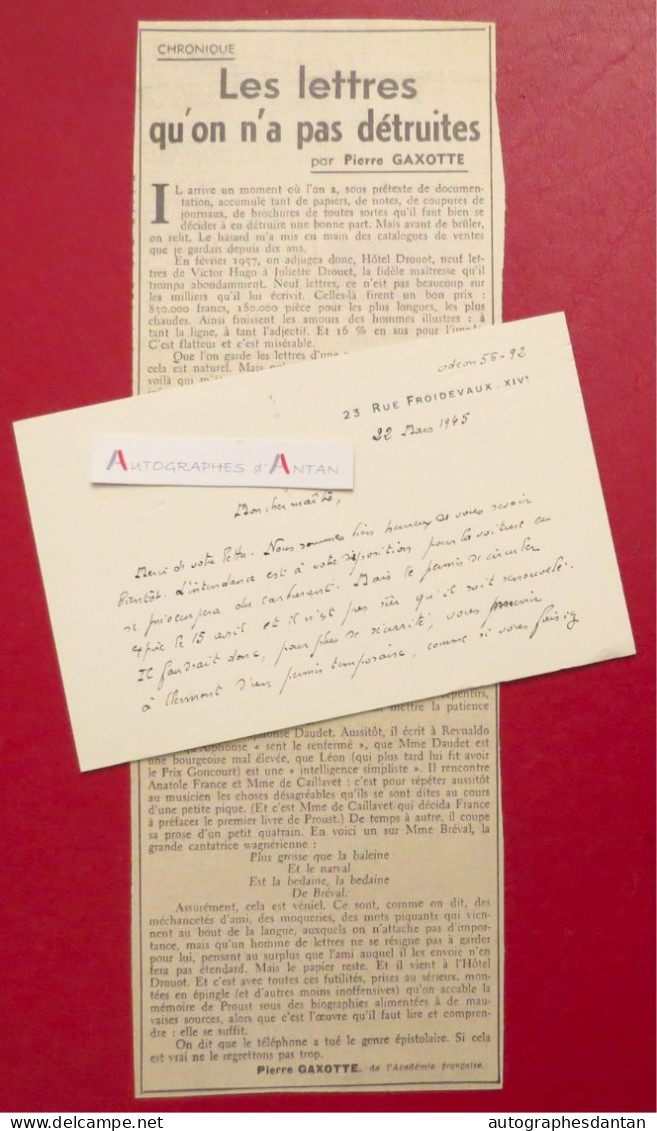 CHRONIQUE
Les lettres
qu'on n'a pas détruites
par Pierre GAXOTTE
IL arrive un moment où l'on a, sous prétexte de documen-
tation, accumulé tant de papiers, de notes, de coupures de
journaux, de brochures de toutes sortes qu'il faut bien se
décider à en détruire une bonne part. Mais avant de brûler,
on relit. Le hasard m'a mis en main des catalogues de ventes
que je gardais depuis dix ans.
En février 1957, on adjugea donc, Hôtel Drouot, neuf let-
tres de Victor Hugo à Juliette Drouet, la fidèle maîtresse qu'il
trompa abondamment. Neuf lettres, ce n'est pas beaucoup sur
les milliers qu'il lui écrivit. Celles-là firent un bon prix :
830.000 francs, 180.000 pièce pour les plus longues, les plus
chaudes. Ainsi finissent les amours des hommes illustres : à
tant la ligne, à tant l'adjectif. Et 16 % en sus pour l'impôt.
C'est flatteur et c'est misérable.
Que l'on garde les lettres d'une
cela est naturel. Mais
voilà qui
odeon 56-92
23 RUE FROIDEVAUX. XIVe
22 Mars 1945
AUTOGRAPHES d'ANTAN
Mon cher maître,
Merci de votre lettre. Nous sommes bien heureux de vous revoir
bientôt. L'intendance est à votre disposition pour la voiture et
se préoccupera du carburant. Mais le permis de circuler
expire le 15 avril et il n'est pas sûr qu'il soit renouvelé.
Il faudrait donc, pour plus de sécurité, vous munir
à Clermont d'un permis temporaire, comme si vous faisiez
repentirs,
mettre la patience
Alphonse Daudet. Aussitôt, il écrit à Reynaldo
qu'Alphonse « sent le renfermé », que Mme Daudet est
une bourgeoise mal élevée, que Léon (qui plus tard lui fit avoir
le Prix Goncourt) est une « intelligence simpliste ». Il rencontre
Anatole France et Mme de Caillavet : c'est pour répéter aussitôt
au musicien les choses désagréables qu'ils se sont dites au cours
d'une petite pique. (Et c'est Mme de Caillavet qui décida France
à préfacer le premier livre de Proust.) De temps à autre, il coupe
sa prose d'un petit quatrain. En voici un sur Mme Bréval, la
grande cantatrice wagnérienne :
Plus grosse que la baleine
Et le narval
Est la bedaine, la bedaine
De Bréval.
Assurément, cela est véniel. Ce sont, comme on dit, des
méchancetés d'ami, des moqueries, des mots piquants qui vien-
nent au bout de la langue, auxquels on n'attache pas d'impor-
tance, mais qu'un homme de lettres ne se résigne pas à garder
pour lui, pensant au surplus que l'ami auquel il les envoie n'en
fera pas étendard. Mais le papier reste. Et il vient à l'Hôtel
Drouot. Et c'est avec toutes ces futilités, prises au sérieux, mon-
tées en épingle (et d'autres moins inoffensives) qu'on accable la
mémoire de Proust sous des biographies alimentées à de mau-
vaises sources, alors que c'est l'œuvre qu'il faut lire et compren-
dre : elle se suffit.
On dit que le téléphone a tué le genre épistolaire. Si cela
est vrai ne le regrettons pas trop.
Pierre GAXOTTE, de l'Académie française.
delcampe.net
autographesdantan